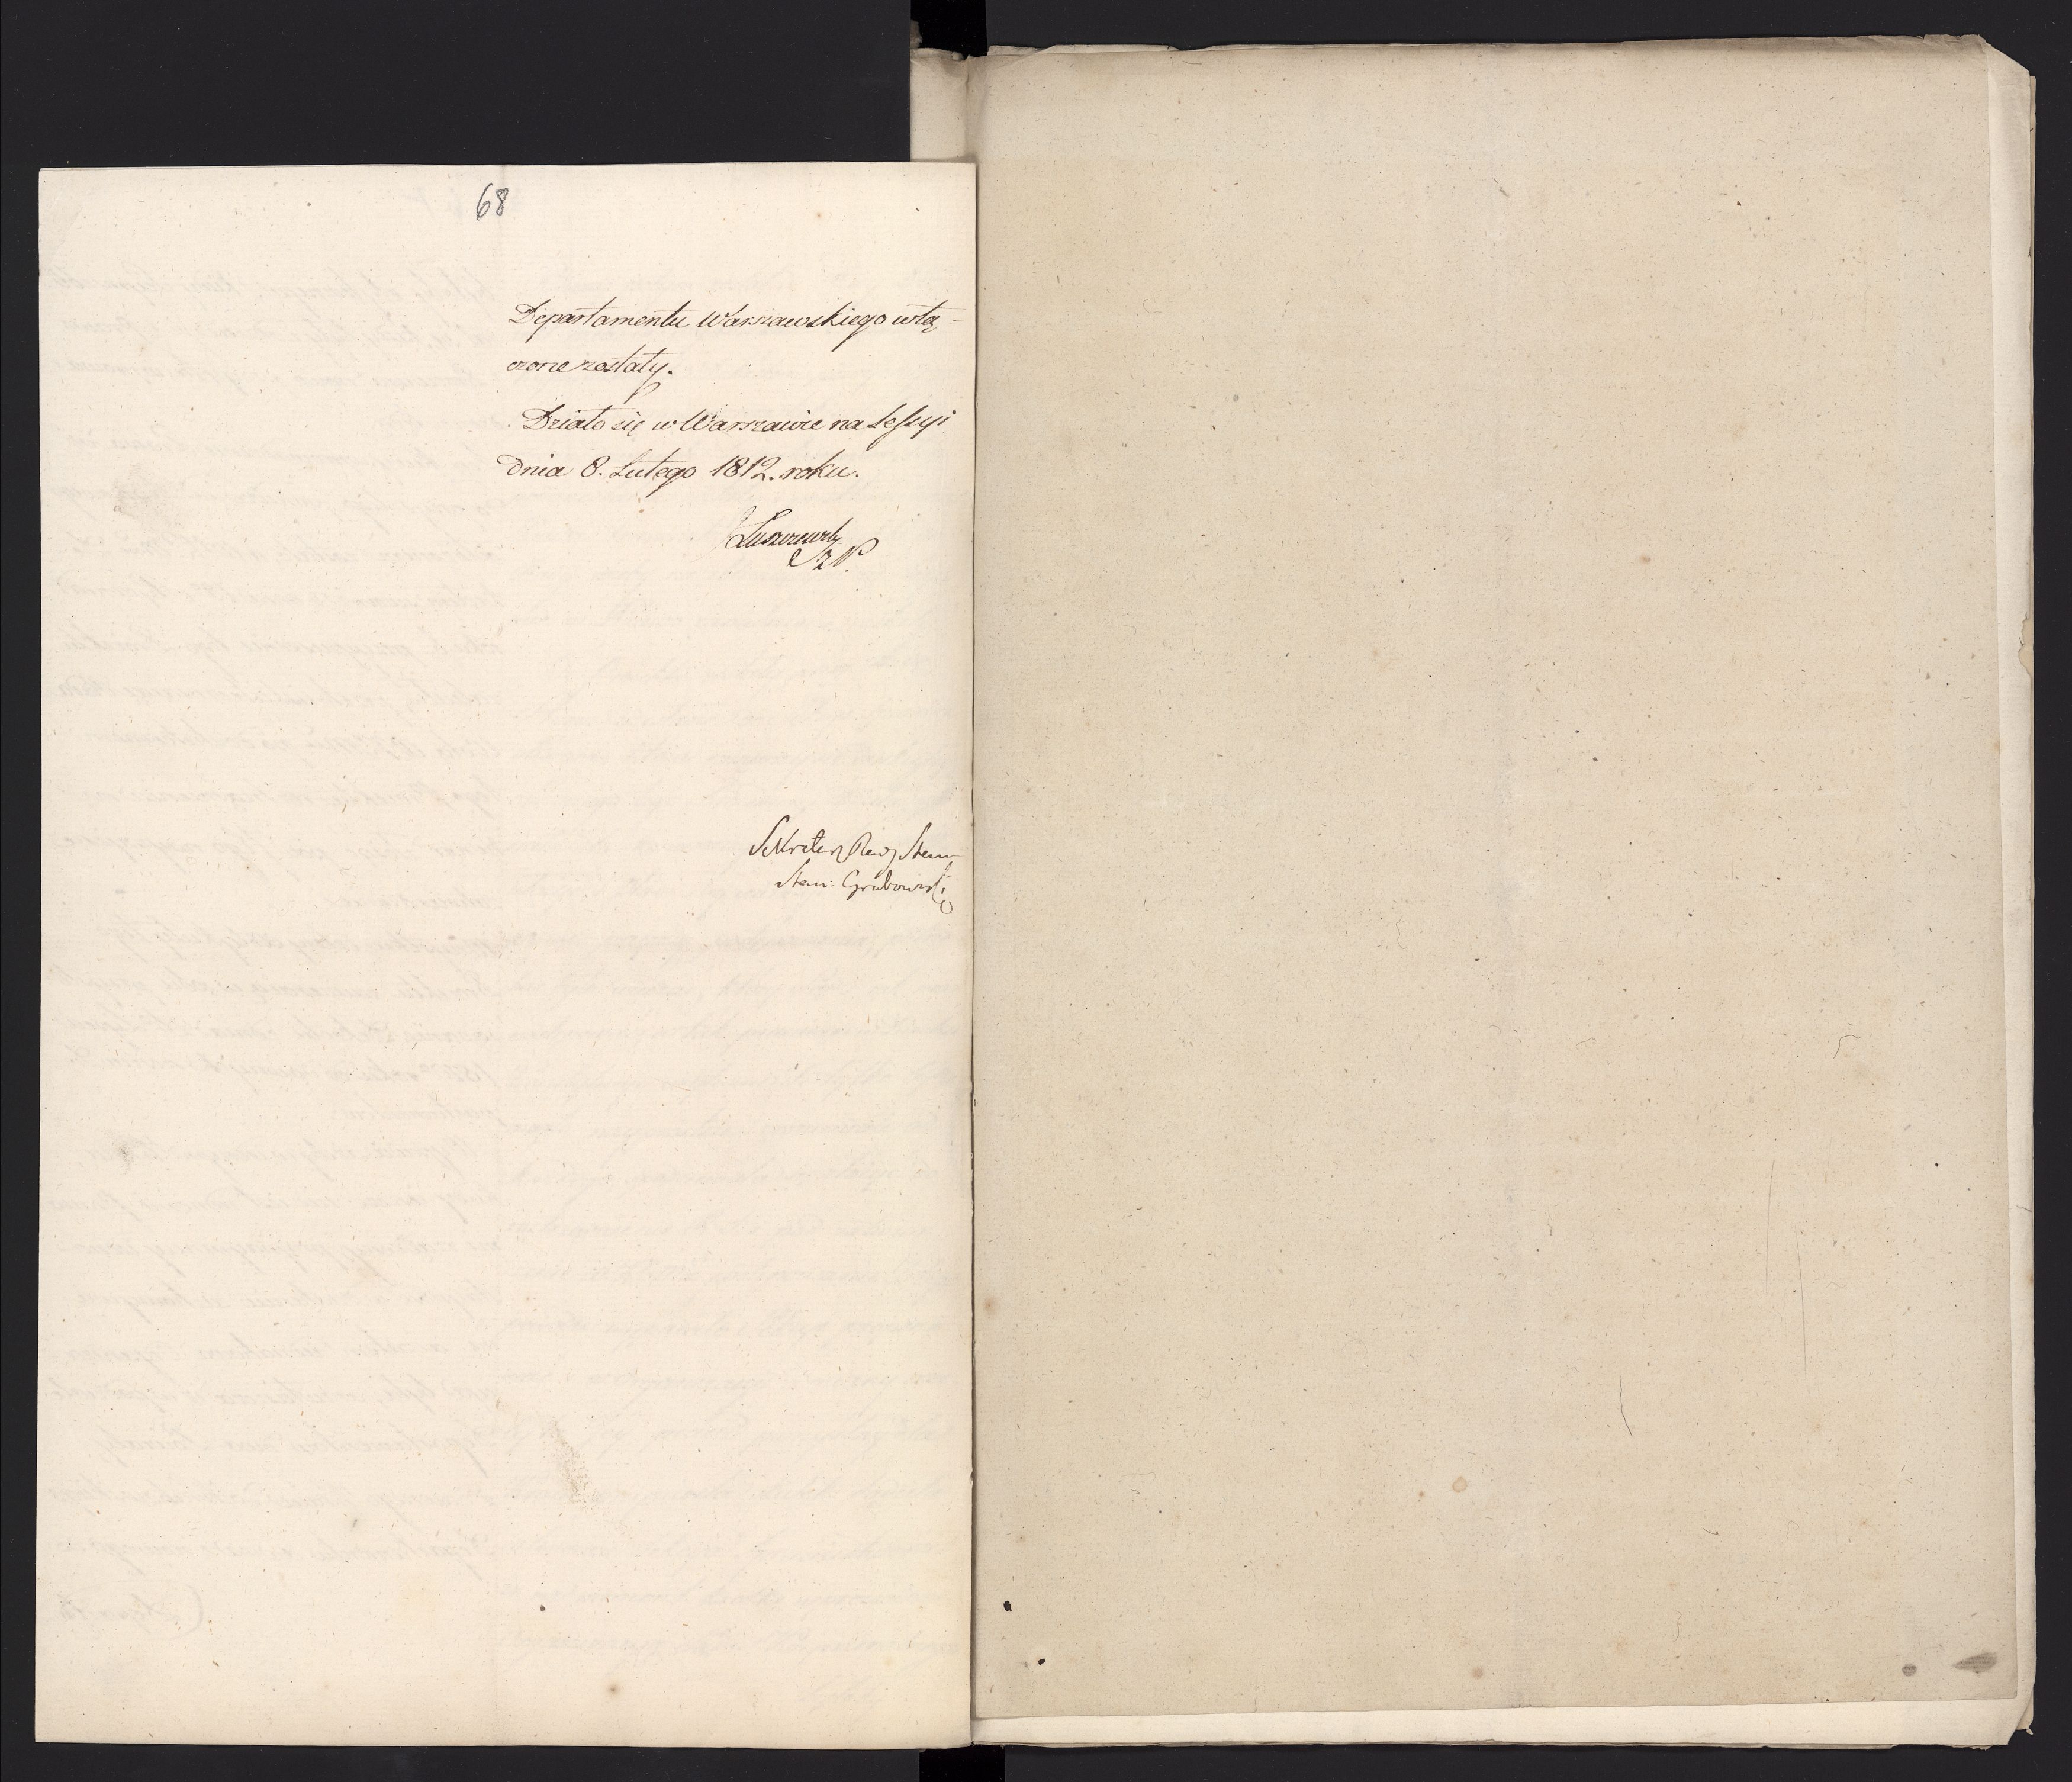 68
Departamentu Warszawskiego włą-
czone zostały.
Działo się w Warszawie na Sessyi
dnia 8. Lutego 1812. roku.
Łuszczewsky
Sekretarz Rady Stanu
Stan: Grabowski